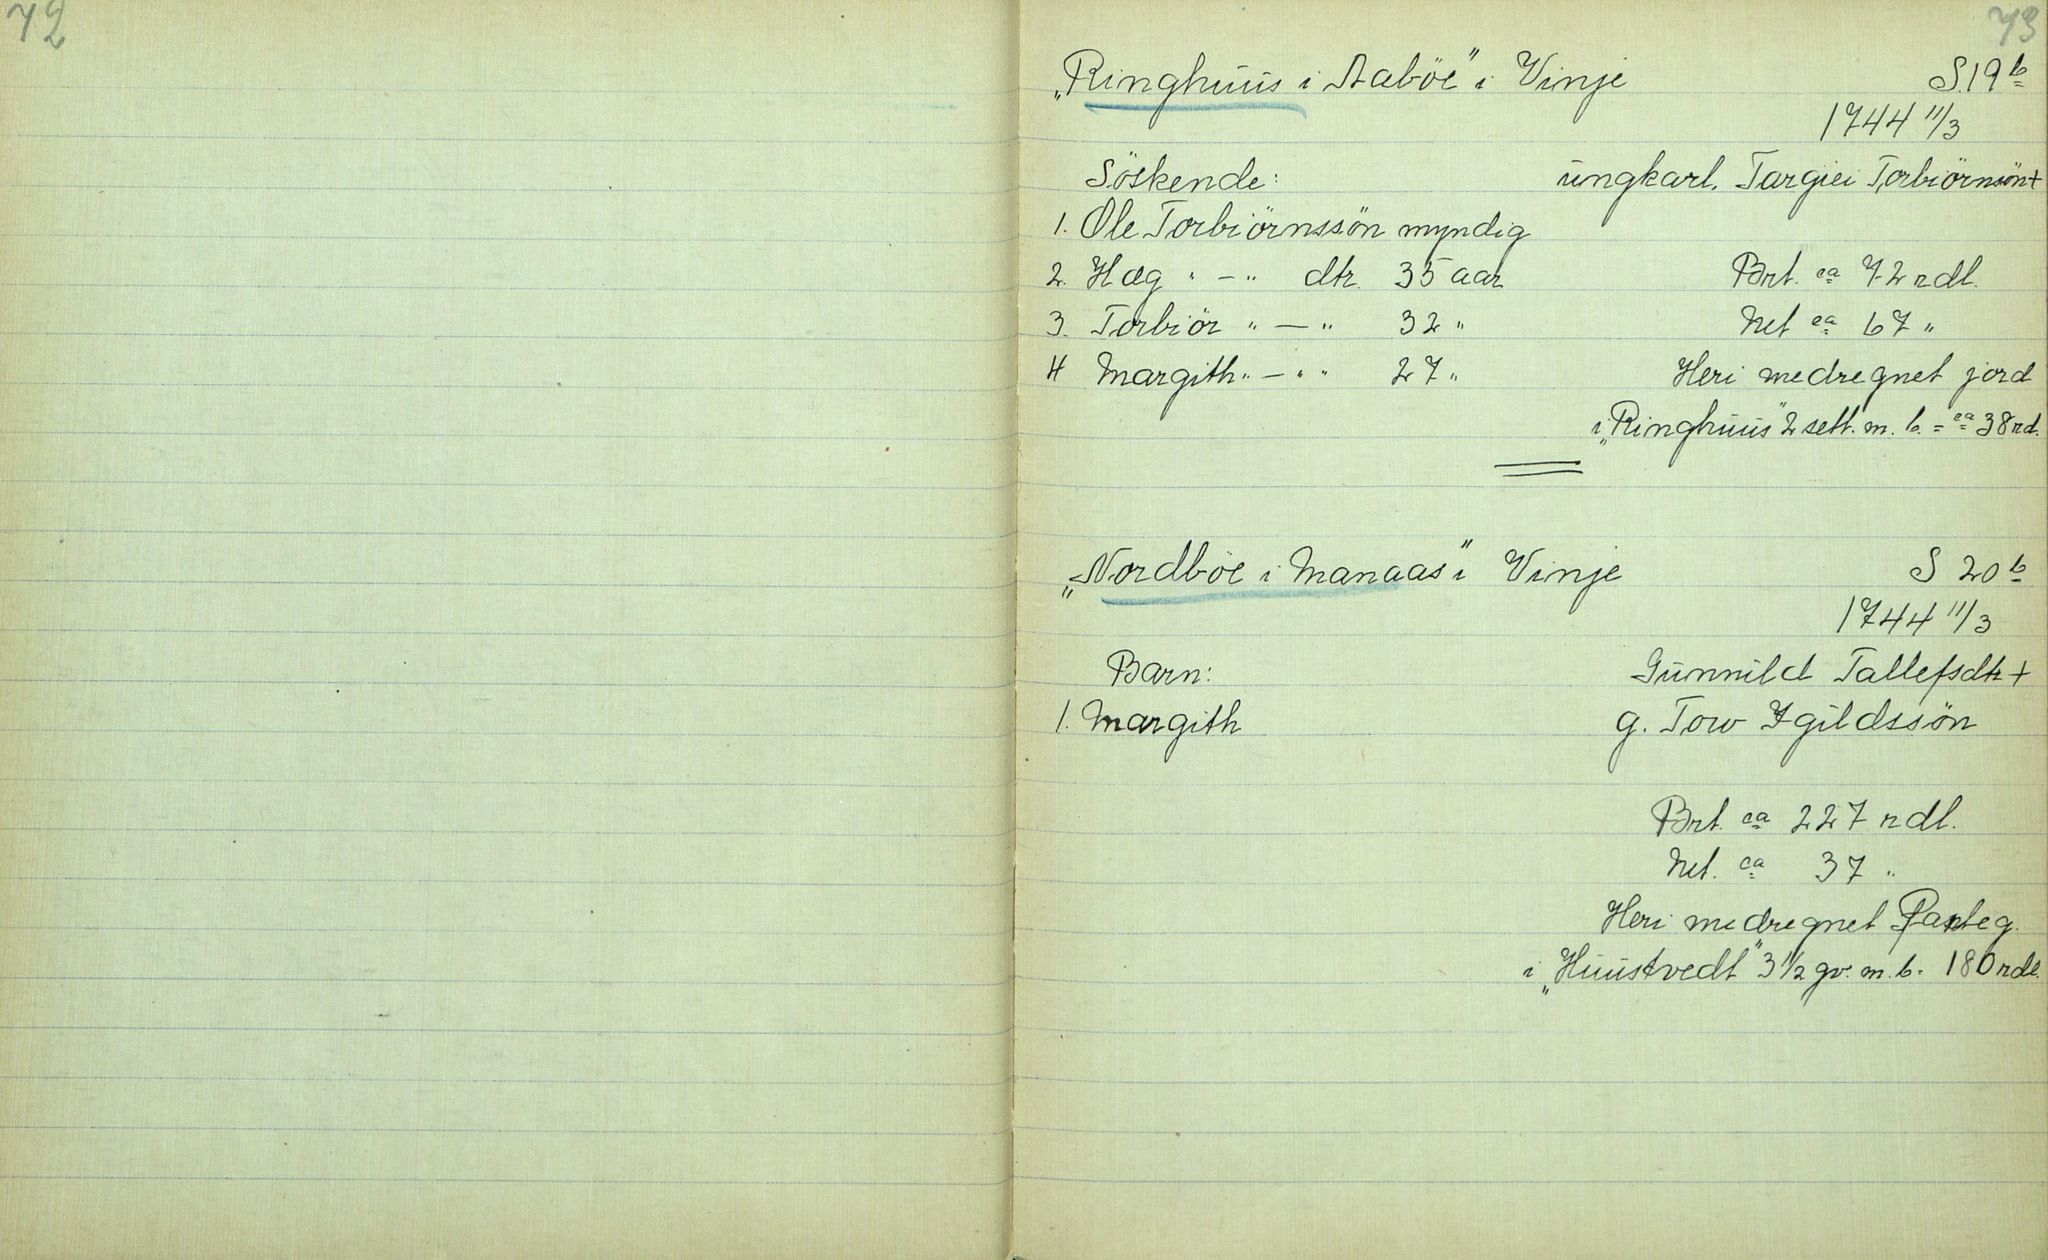 72
73
„Ringhuus i Aaböe" i Vinje S. 19 b
1744 11/3
Söskende: ungkarl. Targiei Torbiörnsön +
1. Ole Torbiörnssön myndig
2. Hæg " — " dtr. 35 aar Brt. ca 72 rdl.
3. Torbiör " — " 32 " Net ca 67 "
4 Margith " — " " 27 " Heri medregnet jord
i „Ringhuus" 2 sett. m. b. = ca 38 rd.
„Nordböe i Manaas" i Vinje S 20 b
1744 11/3
Barn: Gunnild Tallefsdtr +
1. Margith g. Tow Igildssön
Brt. ca 227 rdl.
Net. ca 37 "
Heri medregnet Panteg.
i „Huustvedt" 3 1/2 gv. m. b. = 180 rdl.